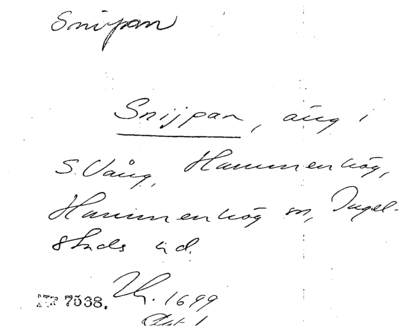 Snipan
Snijpan, äng i
S. Vång, Hammenhög,
Hammenhög sn, Ingel-
stads hd.
7538. 1699
Akt 1